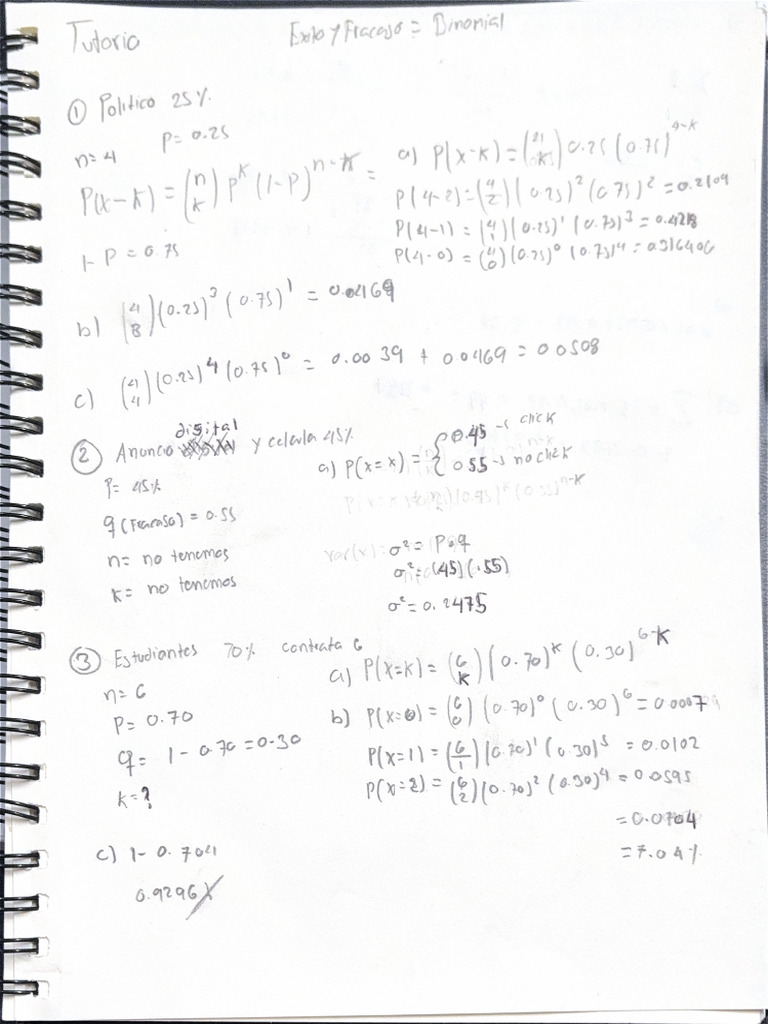 Tutoria
Exito y Fracaso = Binomial
① Politico 25%
n=4 P=0.25
P(x-k) = (n k) P^k (1-P)^n-k =
1-P = 0.75
a) P(x-k) = (4 k) 0.25 (0.75)^4-k
P(4-2) = (4 2) (0.25)^2 (0.75)^2 = 0.2109
P(4-1) = (4 1) (0.25)^1 (0.75)^3 = 0.4218
P(4-0) = (4 0) (0.25)^0 (0.75)^4 = 0.316406
b) (4 3) (0.25)^3 (0.75)^1 = 0.0469
c) (4 4) (0.25)^4 (0.75)^0 = 0.0039 + 0.0469 = 0.0508
② Anuncio digital y celula 45%
P= 45%
q (Fracaso) = 0.55
n= no tenemos
k= no tenemos
a) P(x=x) = { 0.45 → click
0.55 → no click
var(x):
σ² = P.q
σ² = (.45)(.55)
σ² = 0.2475
③ Estudiantes 70% contrata 6
n= 6
P= 0.70
q= 1-0.70 = 0.30
k=?
a) P(x=k) = (6 k) (0.70)^k (0.30)^6-k
b) P(x=0) = (6 0) (0.70)^0 (0.30)^6 = 0.0007
P(x=1) = (6 1) (0.70)^1 (0.30)^5 = 0.0102
P(x=2) = (6 2) (0.70)^2 (0.30)^4 = 0.0595
= 0.0704
= 7.04%
c) 1-0.704
0.9296